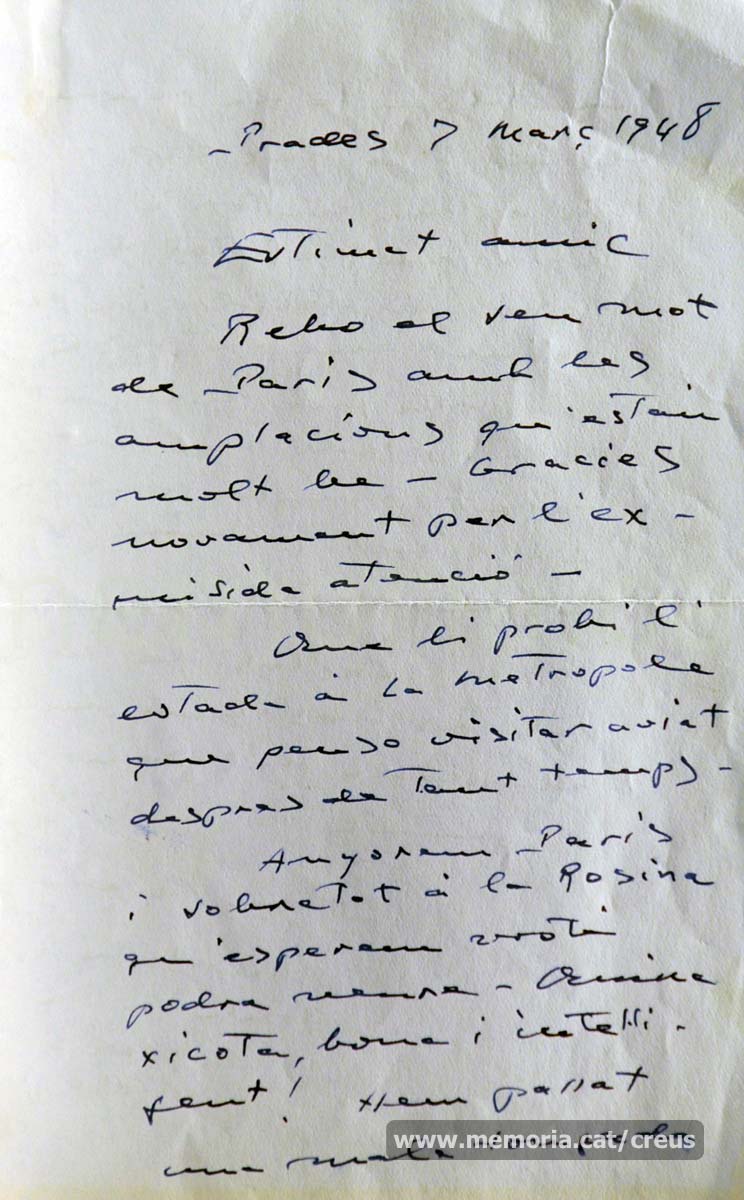 Prades 7 març 1948
Estimat amic
Rebo el seu mot
de Paris amb les
amplacions qu'estan
molt be - Gracies
novament per l'ex -
misida atenció -
Que li probi l'
estada à la metropole
que penso visitar aviat
despres de tant temps -
Anyorem Paris
i sobretot à la Rosina
qu'esperem
podra veure - Quina
xicota, bona i intelli -
gent! Hem passat
una mala
www.memoria.cat/creus